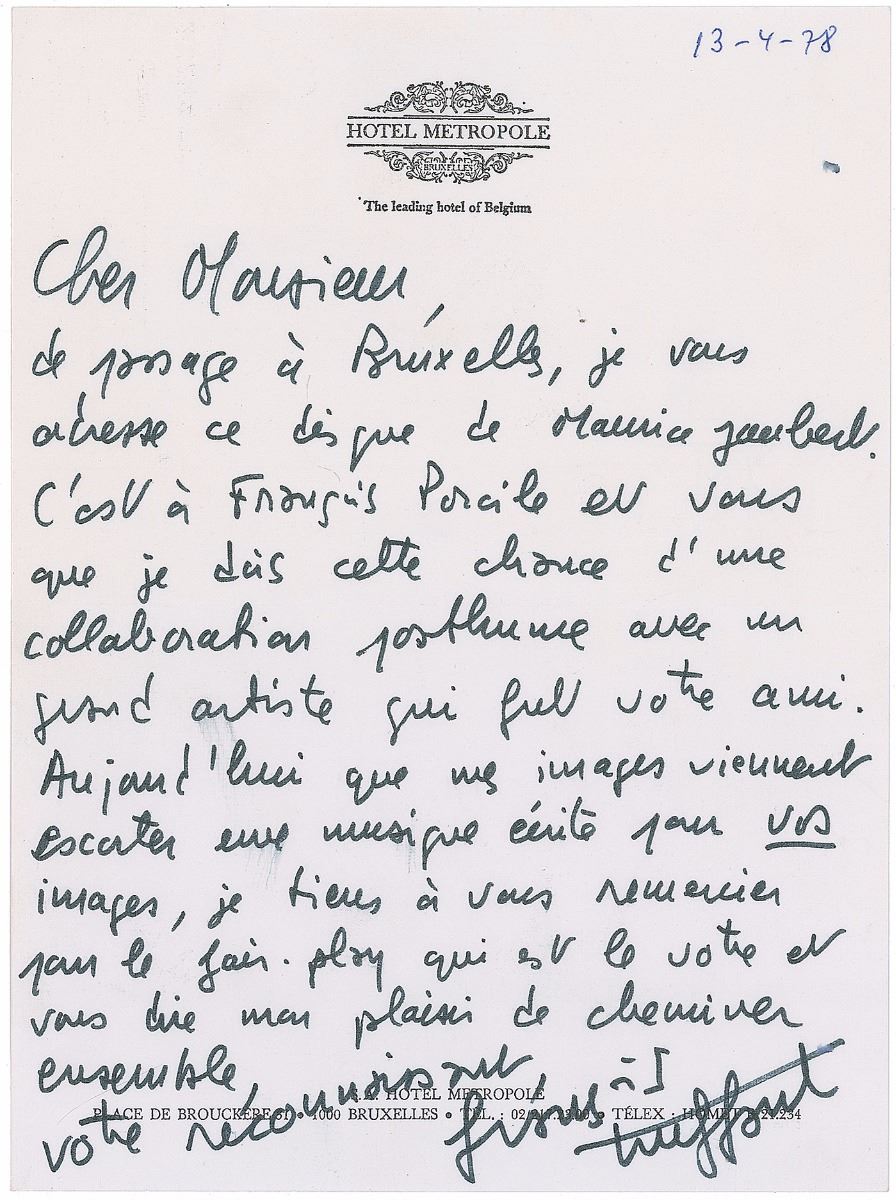 13-4-78
HOTEL METROPOLE
BRUXELLES
The leading hotel of Belgium
Cher Monsieur,
de passage à Bruxelles, je vous
adresse ce disque de Maurice Jaubert.
C'est à François Porcile et vous
que je dois cette chance d'une
collaboration posthume avec un
grand artiste qui fut votre ami.
Aujourd'hui que mes images viennent
escorter une musique écrite pour vos
images, je tiens à vous remercier
pour le fair-play qui est le votre et
vous dire mon plaisir de cheminer
ensemble,
S.A. HOTEL METROPOLE
PLACE DE BROUCKÈRE 31 • 1000 BRUXELLES • TÉL. : 02/217.23.00 • TÉLEX : HOMET B 21.234
votre réconnaissant, françois truffaut